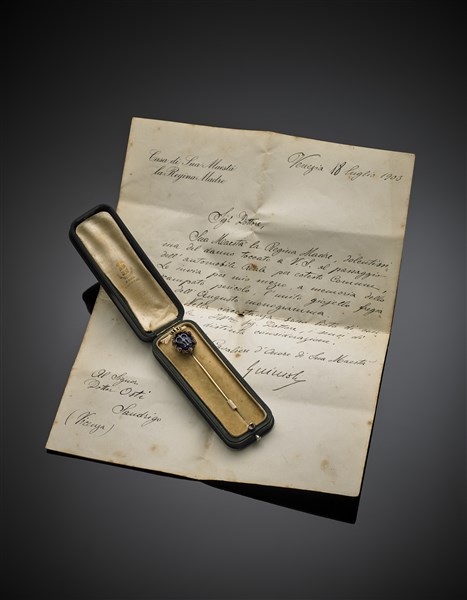 Casa di Sua Maestà
la Regina Madre
Venezia 18 luglio 1903
Sigr Dottore,
Sua Maestà la Regina Madre,
del danno toccato a V. S. al passaggio
dell'automobile Reale per cotesto Comune,
Le invia per mio mezzo, a memoria dello
scampato pericolo l'unito gioiello fregia
dell'Augusto monogramma.
Dottore, i sensi di
considerazione.
Cavaliere d'Onore di Sua Maestà
Guiccioli
Al Signor
Dottor Osti
Sandrigo
(Vicenza)